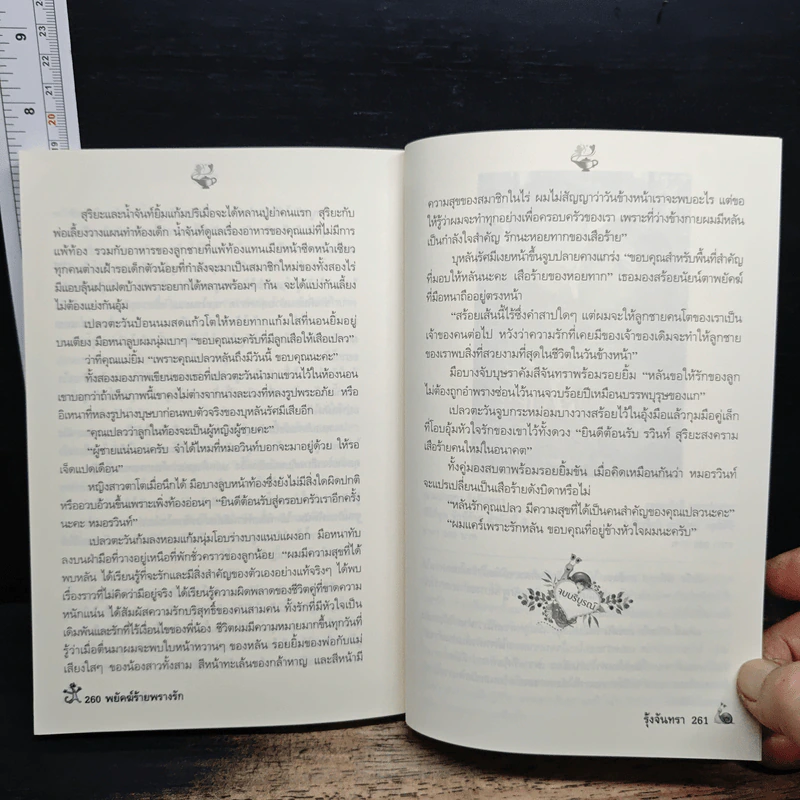 สุริยะและน้ำจันท์ยิ้มแก้มปริเมื่อจะได้หลานปู่ย่าคนแรก สุริยะกับ
พ่อเลี้ยงวางแผนทำห้องเด็ก น้ำจันท์ดูแลเรื่องอาหารของคุณแม่ที่ไม่มีการ
แพ้ท้อง รวมกับอาหารของลูกชายที่แพ้ท้องแทนเมียหน้าซีดหน้าเซียว
ทุกคนต่างเฝ้ารอเด็กตัวน้อยที่กำลังจะมาเป็นสมาชิกใหม่ของทั้งสองไร่
มีแอบลุ้นฝาแฝดบ้างเพราะอยากได้หลานพร้อมๆ กัน จะได้แบ่งกันเลี้ยง
ไม่ต้องแย่งกันอุ้ม
เปลวตะวันป้อนนมสดแก้วโตให้หอยทากแก้มใสที่นอนยิ้มอยู่
บนเตียง มือหนาลูบผมนุ่มเบาๆ “ขอบคุณนะครับที่มีลูกเสือให้เสือเปลว”
ว่าที่คุณแม่ยิ้ม “เพราะคุณเปลวหลันถึงมีวันนี้ ขอบคุณนะคะ”
ทั้งสองมองภาพเขียนของเธอที่เปลวตะวันนำมาแขวนไว้ในห้องนอน
เขาบอกว่าถ้าเห็นภาพนี้เขาคงไม่ต่างจากนางละเวงที่หลงรูปพระอภัย หรือ
อิเหนาที่หลงรูปนางบุษบาก่อนพบตัวจริงของบุหลันรัศมีเสียอีก
“คุณเปลวว่าลูกในท้องจะเป็นผู้หญิงผู้ชายคะ”
“ผู้ชายแน่นอนครับ จำได้ไหมที่หมอวินท์บอกจะมาอยู่ด้วย ให้รอ
เจ็ดแปดเดือน”
หญิงสาวตาโตเมื่อนึกได้ มือบางลูบหน้าท้องซึ่งยังไม่มีสิ่งใดผิดปกติ
หรืออวบอ้วนขึ้นเพราะเพิ่งท้องอ่อนๆ “ยินดีต้อนรับสู่ครอบครัวเราอีกครั้ง
นะคะ หมอรวินท์”
เปลวตะวันก้มลงหอมแก้มนุ่มโอบร่างบางแนบแผงอก มือหนาทับ
ลงบนฝ่ามือที่วางอยู่เหนือที่พักชั่วคราวของลูกน้อย “ผมมีความสุขที่ได้
พบหลัน ได้เรียนรู้ที่จะรักและมีสิ่งสำคัญของตัวเองอย่างแท้จริงๆ ได้พบ
เรื่องราวที่ไม่คิดว่ามีอยู่จริง ได้เรียนรู้ความผิดพลาดของชีวิตคู่ที่ขาดความ
หนักแน่น ได้สัมผัสความรักบริสุทธิ์ของคนสามคน ทั้งรักที่มีหัวใจเป็น
เดิมพันและรักที่ไร้เงื่อนไขของพี่น้อง ชีวิตผมมีความหมายมากขึ้นทุกวันที่
รู้ว่าเมื่อตื่นมาผมจะพบใบหน้าหวานๆ ของหลัน รอยยิ้มของพ่อกับแม่
เสียงใสๆ ของน้องสาวทั้งสาม สีหน้าทะเล้นของกล้าหาญ และสีหน้ามี
260 พยัคฆ์ร้ายพรางรัก
ความสุขของสมาชิกในไร่ ผมไม่สัญญาว่าวันข้างหน้าเราจะพบอะไร แต่ขอ
ให้รู้ว่าผมจะทำทุกอย่างเพื่อครอบครัวของเรา เพราะที่ว่างข้างกายผมมีหลัน
เป็นกำลังใจสำคัญ รักนะหอยทากของเสือร้าย”
บุหลันรัศมีเงยหน้าขึ้นจูบปลายคางแกร่ง “ขอบคุณสำหรับพื้นที่สำคัญ
ที่มอบให้หลันนะคะ เสือร้ายของหอยทาก” เธอมองสร้อยนัยน์ตาพยัคฆ์
ที่มือหนาถืออยู่ตรงหน้า
“สร้อยเส้นนี้ไร้ซึ่งคำสาปใดๆ แต่ผมจะให้ลูกชายคนโตของเราเป็น
เจ้าของคนต่อไป หวังว่าความรักที่เคยมีของเจ้าของเดิมจะทำให้ลูกชาย
ของเราพบสิ่งที่สวยงามที่สุดในชีวิตในวันข้างหน้า”
มือบางจับบุษราคัมสีจันทราพร้อมรอยยิ้ม “หลันขอให้รักของลูก
ไม่ต้องถูกอำพรางซ่อนไว้นานจวบร้อยปีเหมือนบรรพบุรุษของแก”
เปลวตะวันจูบกระหม่อมบางวางสร้อยไว้ในอุ้งมือแล้วกุมมือคู่เล็ก
ที่โอบอุ้มหัวใจรักของเขาไว้ทั้งดวง “ยินดีต้อนรับ รวินท์ สุริยะสงคราม
เสือร้ายคนใหม่ในอนาคต”
ทั้งคู่มองสบตาพร้อมรอยยิ้มขัน เมื่อคิดเหมือนกันว่า หมอรวินท์
จะแปรเปลี่ยนเป็นเสือร้ายดังบิดาหรือไม่
“หลันรักคุณเปลว มีความสุขที่ได้เป็นคนสำคัญของคุณเปลวนะคะ”
“ผมแคร์เพราะรักหลัน ขอบคุณที่อยู่ข้างหัวใจผมนะครับ”
จบบริบูรณ์
รุ้งจันทรา 261
9
8
23
22
21
20
19